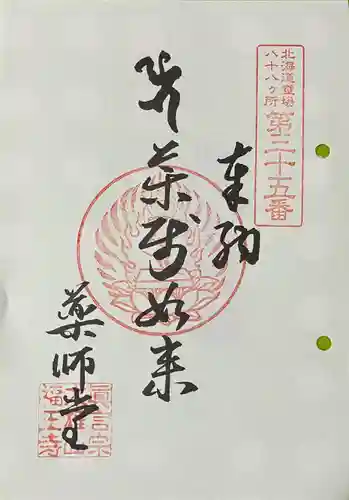 北海道霊場
八十八ヶ所
第二十五番
奉拝
薬師如来
薬師堂
真言宗
福王寺